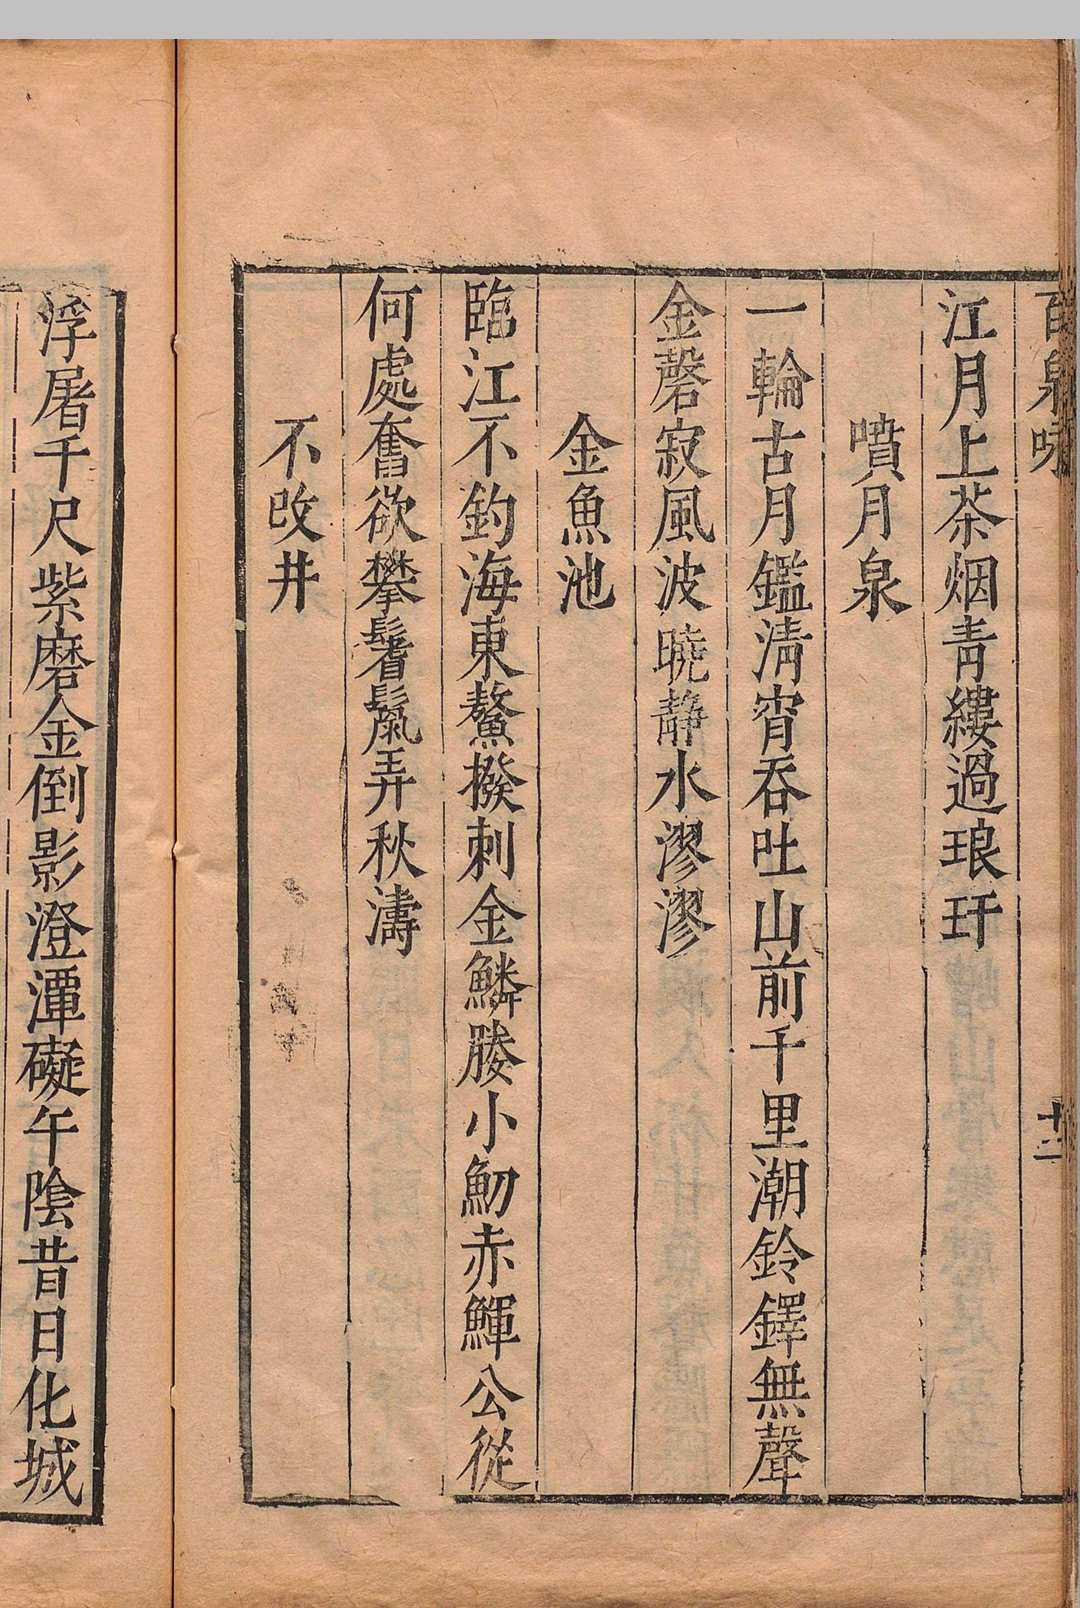 百泉咏
十二
江月上茶烟青縷過琅玕
噴月泉
一輪古月鑑淸宵吞吐山前千里潮鈴鐸無聲
金磬寂風波曉靜水漻漻
金魚池
臨江不釣海東鰲撥剌金鱗媵小魛赤鯶公從
何處奮欲攀鬐鬣弄秋濤
不改井
浮屠千尺紫磨金倒影澄潭礙午陰昔日化城